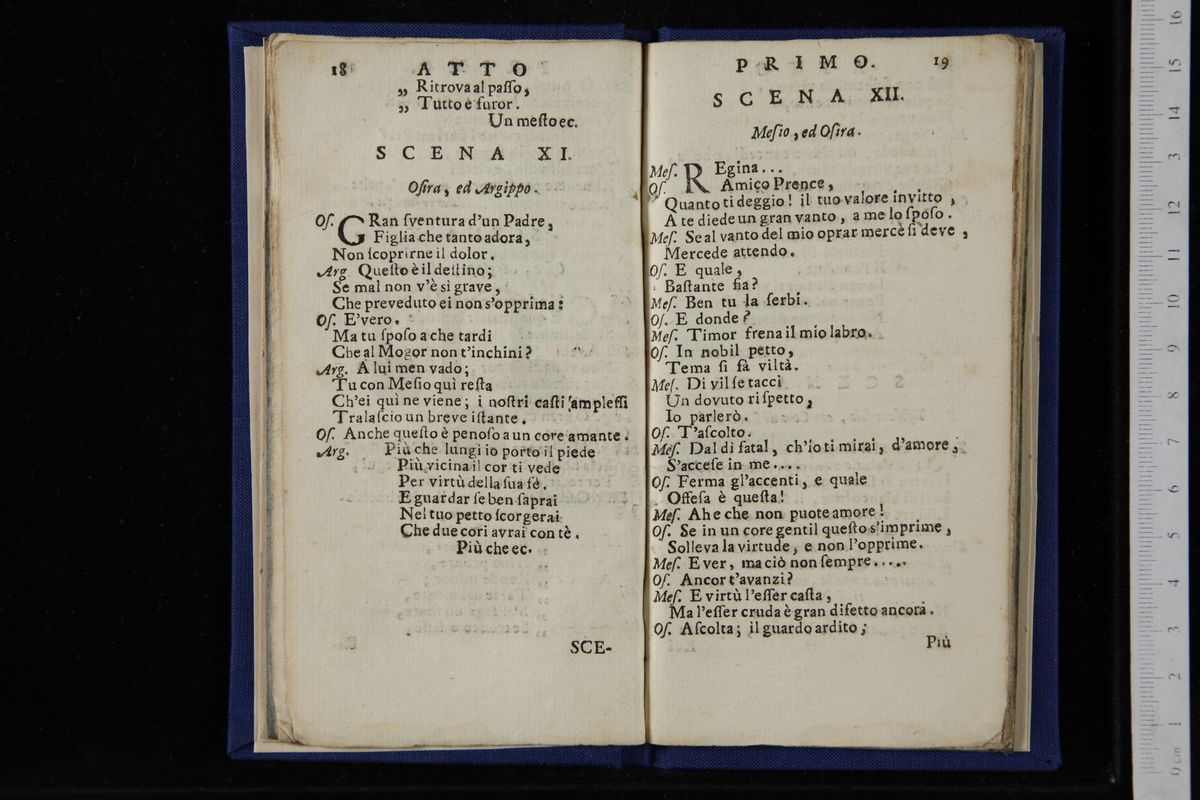 18 ATTO
„ Ritrova al paſſo,
„ Tutto è furor.
Un meſto ec.
SCENA XI.
Oſira, ed Argippo.
Oſ. GRan ſventura d'un Padre,
Figlia che tanto adora,
Non ſcoprirne il dolor.
Arg Queſto è il deſtino;
Se mal non v'è sì grave,
Che preveduto ei non s'opprima:
Oſ. E'vero.
Ma tu ſpoſo a che tardi
Che al Mogor non t'inchini?
Arg. A lui men vado;
Tu con Meſio quì reſta
Ch'ei quì ne viene; i noſtri caſti ampleſſi
Tralaſcio un breve iſtante.
Oſ. Anche queſto è penoſo a un core amante.
Arg. Più che lungi io porto il piede
Più vicina il cor ti vede
Per virtù della ſua fè.
E guardar ſe ben ſaprai
Nel tuo petto ſcorgerai
Che due cori avrai con tè.
Più che ec.
SCE-
PRIMO. 19
SCENA XII.
Meſio, ed Oſira.
Meſ. REgina...
Oſ. Amico Prence,
Quanto ti deggio! il tuo valore invitto,
A te diede un gran vanto, a me lo ſpoſo.
Meſ. Se al vanto del mio oprar mercè ſi deve,
Mercede attendo.
Oſ. E quale,
Baſtante fia?
Meſ. Ben tu la ſerbi.
Oſ. E donde?
Meſ. Timor frena il mio labro.
Oſ. In nobil petto,
Tema ſi fà viltà.
Meſ. Di vil ſe tacci
Un dovuto riſpetto,
Io parlerò.
Oſ. T'aſcolto.
Meſ. Dal dì fatal, ch'io ti mirai, d'amore,
S'acceſe in me....
Oſ. Ferma gl'accenti, e quale
Offeſa è queſta!
Meſ. Ahe che non puote amore!
Oſ. Se in un core gentil queſto s'imprime,
Solleva la virtude, e non l'opprime.
Meſ. E ver, ma ciò non ſempre.....
Oſ. Ancor t'avanzi?
Meſ. E virtù l'eſſer caſta,
Ma l'eſſer cruda è gran difetto ancora.
Oſ. Aſcolta; il guardo ardito;
Più
0 cm 1 2 3 4 5 6 7 8 9 10 11 12 13 14 15 16